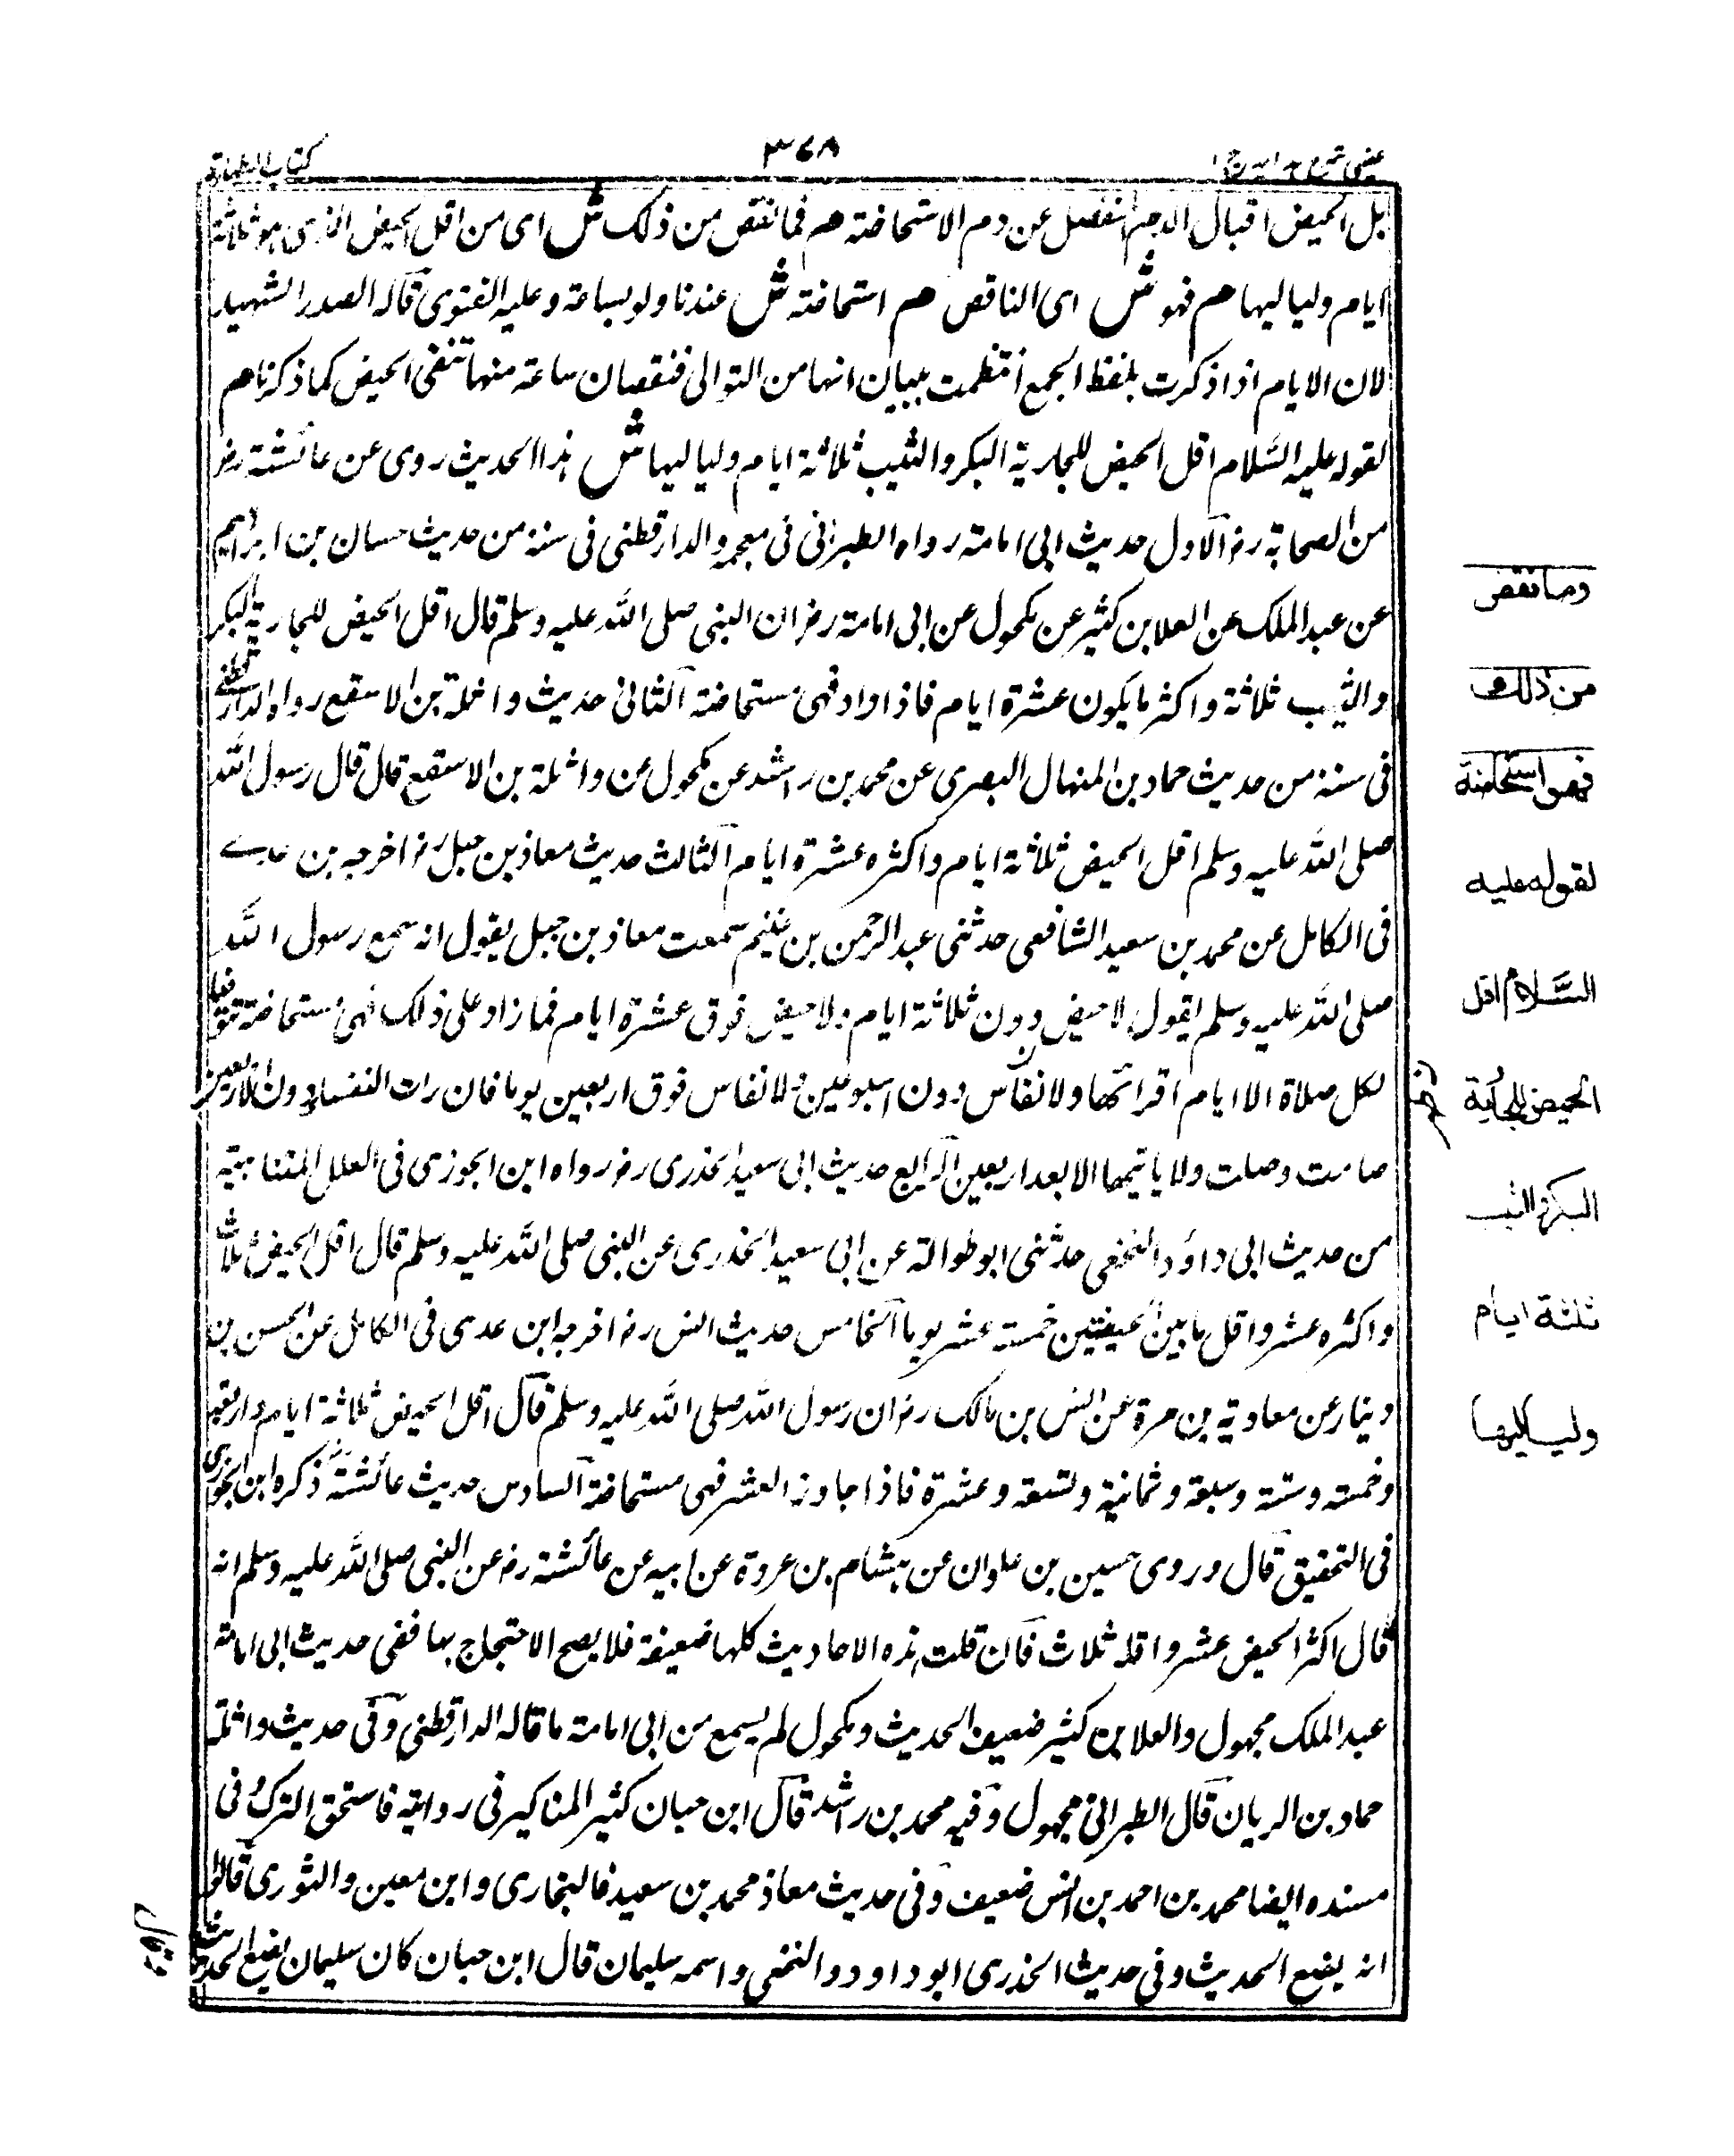 عینی شرح ہدایہ ج ۱
۳۶۸
کتاب الطهارة
بل الحيض اقبال الدم المنفصل عن دم الاستحاضة هم فما نقص من ذلك ش اى من اقل الحيض الذى هو ثلاثة
ايام ولياليها هم فهو ش اى الناقص هم استحاضة ش عندنا ولو بساعة وعليه الفتوى قاله الصدر الشهيد
لان الايام اذا ذكرت بلفظ الجمع انتظمت ببيان انها من التوالى فنقصان ساعة منها تنفى الحيض كما ذكرنا هم
لقوله عليه السلام اقل الحيض للجارية البكر والثيب ثلاثة ايام ولياليها ش هذا الحديث روى عن عائشة رض
من الصحابة رض الاول حديث ابى امامة رواه الطبرانى فى معجمه والدارقطنى فى سننه من حديث حسان بن ابراهيم
عن عبد الملك عن العلا بن كثير عن مكحول عن ابى امامة رض ان النبى صلى الله عليه وسلم قال اقل الحيض للجارية البكر
والثيب ثلاثة واكثر ما يكون عشرة ايام فاذا زاد فهى مستحاضة الثانى حديث واثلة بن الاسقع رواه الدارقطنى
فى سننه من حديث حماد بن المنهال البصرى عن محمد بن راشد عن مكحول عن واثلة بن الاسقع قال قال رسول الله
صلى الله عليه وسلم اقل الحيض ثلاثة ايام واكثره عشرة ايام الثالث حديث معاذ بن جبل رض اخرجه بن عدے
فى الكامل عن محمد بن سعيد الشافعى حدثنى عبد الرحمن بن غنيم سمعت معاذ بن جبل يقول انه سمع رسول الله
صلى الله عليه وسلم يقول لا حيض دون ثلاثة ايام ولا حيض فوق عشرة ايام فما زاد على ذلك فهى مستحاضة تتوضأ
لكل صلاة الا ايام اقرائها ولا نفاس دون اسبوعين ولا نفاس فوق اربعين يوما فان رات النفساء دون الاربعين
صامت وصلت ولا ياتيها الا بعد اربعين الرابع حديث ابى سعيد الخدرى رض رواه ابن الجوزى فى العلل المتناهية
من حديث ابى داؤد النخعى حدثنى ابو طوالة عن ابى سعيد الخدرى عن النبى صلى الله عليه وسلم قال اقل الحيض ثلاث
واكثره عشر واقل ما بين الحيضتين خمسة عشر يوما الخامس حديث انس رض اخرجه ابن عدى فى الكامل عن الحسن بن
دينار عن معاوية بن مرة عن انس بن مالك رض ان رسول الله صلى الله عليه وسلم قال اقل الحيض ثلاثة ايام واربعة
وخمسة وستة وسبعة وثمانية وتسعة وعشرة فاذا جاوز العشر فهى مستحاضة السادس حديث عائشة رض ذكره ابن الجوزى
فى التحقيق قال وروى حسين بن علوان عن هشام بن عروة عن ابيه عن عائشة رض عن النبى صلى الله عليه وسلم انه
قال اكثر الحيض عشر واقله ثلاث فان قلت هذه الاحاديث كلها ضعيفة فلا يصح الاحتجاج بها ففى حديث ابى امامة
عبد الملك مجهول والعلا بن كثير ضعيف الحديث ومكحول لم يسمع من ابى امامة ما قاله الدارقطنى وفى حديث واثلة
حماد بن الريان قال الطبرانى مجهول وفيه محمد بن راشد قال ابن حبان كثير المناكير فى روايته فاستحق الترك وفى
مسنده ايضا محمد بن احمد بن انس ضعيف وفى حديث معاذ محمد بن سعيد فالبخارى وابن معين والثورى قالوا
انه يضع الحديث وفى حديث الخدرى ابو داود والنخعى واسمه سليمان قال ابن حبان كان سليمان يضع الحديث
وما نقص
من ذلك
فهو استحاضة
لقوله عليه
السلام اقل
الحيض للجارية
البكر والثيب
ثلثة ايام
ولياليها